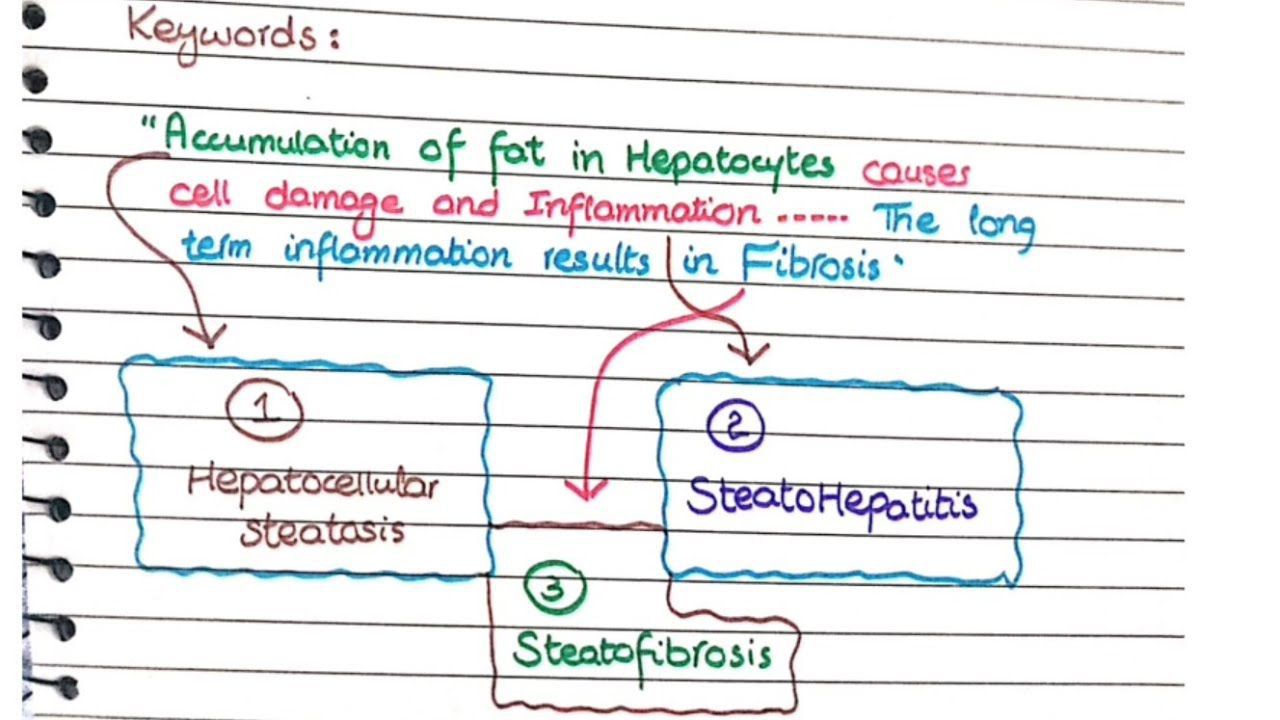 Keywords:
"Accumulation of fat in Hepatocytes causes
cell damage and Inflammation ----- The long
term inflammation results in Fibrosis.
1
Hepatocellular
steatasis
2
SteatoHepatitis
3
Steatofibrosis